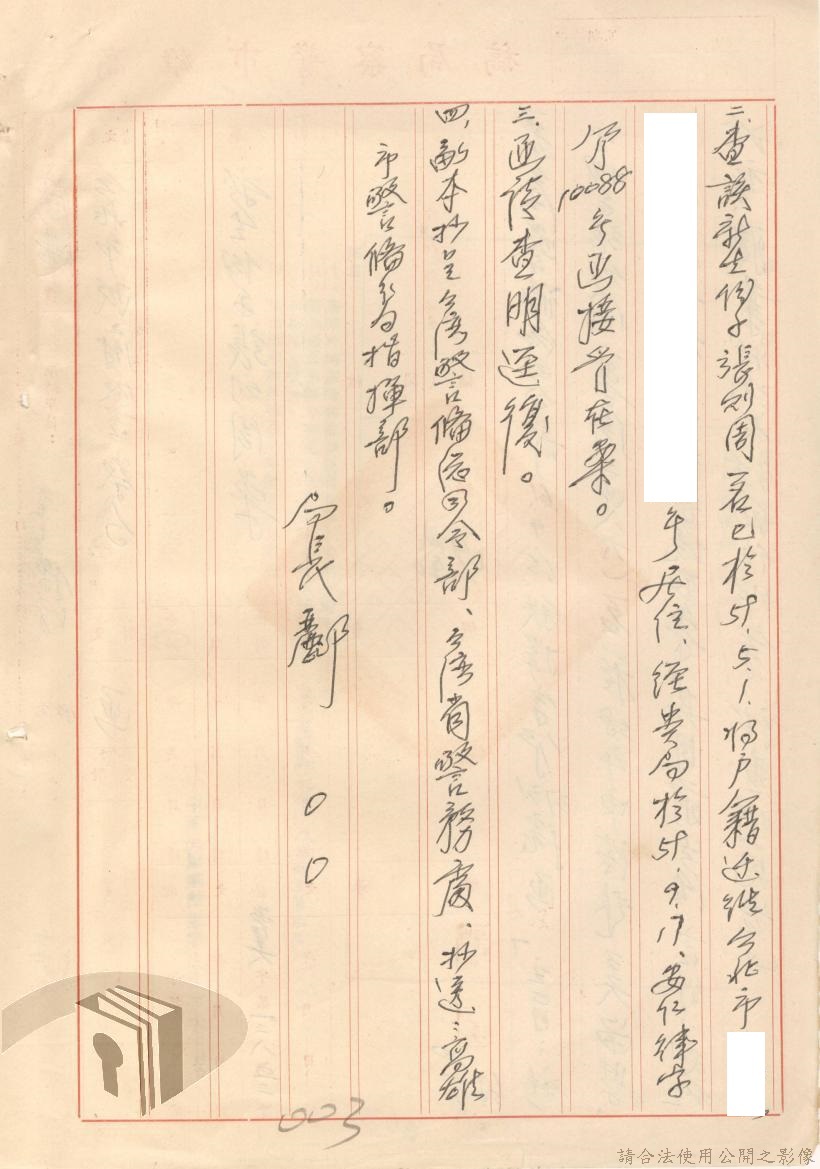 二、查該新生份子張則周君已於58.5.1.將戶籍迁徙台北市
号居住、經貴局於58.9.17、安仁律字
第10088号函接管在案。
三、函請查明逕復。
四、副本抄呈台湾警備总司令部、台湾省警務處、抄送:高雄
市警備分區指揮部。
局長酈〇〇
003
請合法使用公開之影像